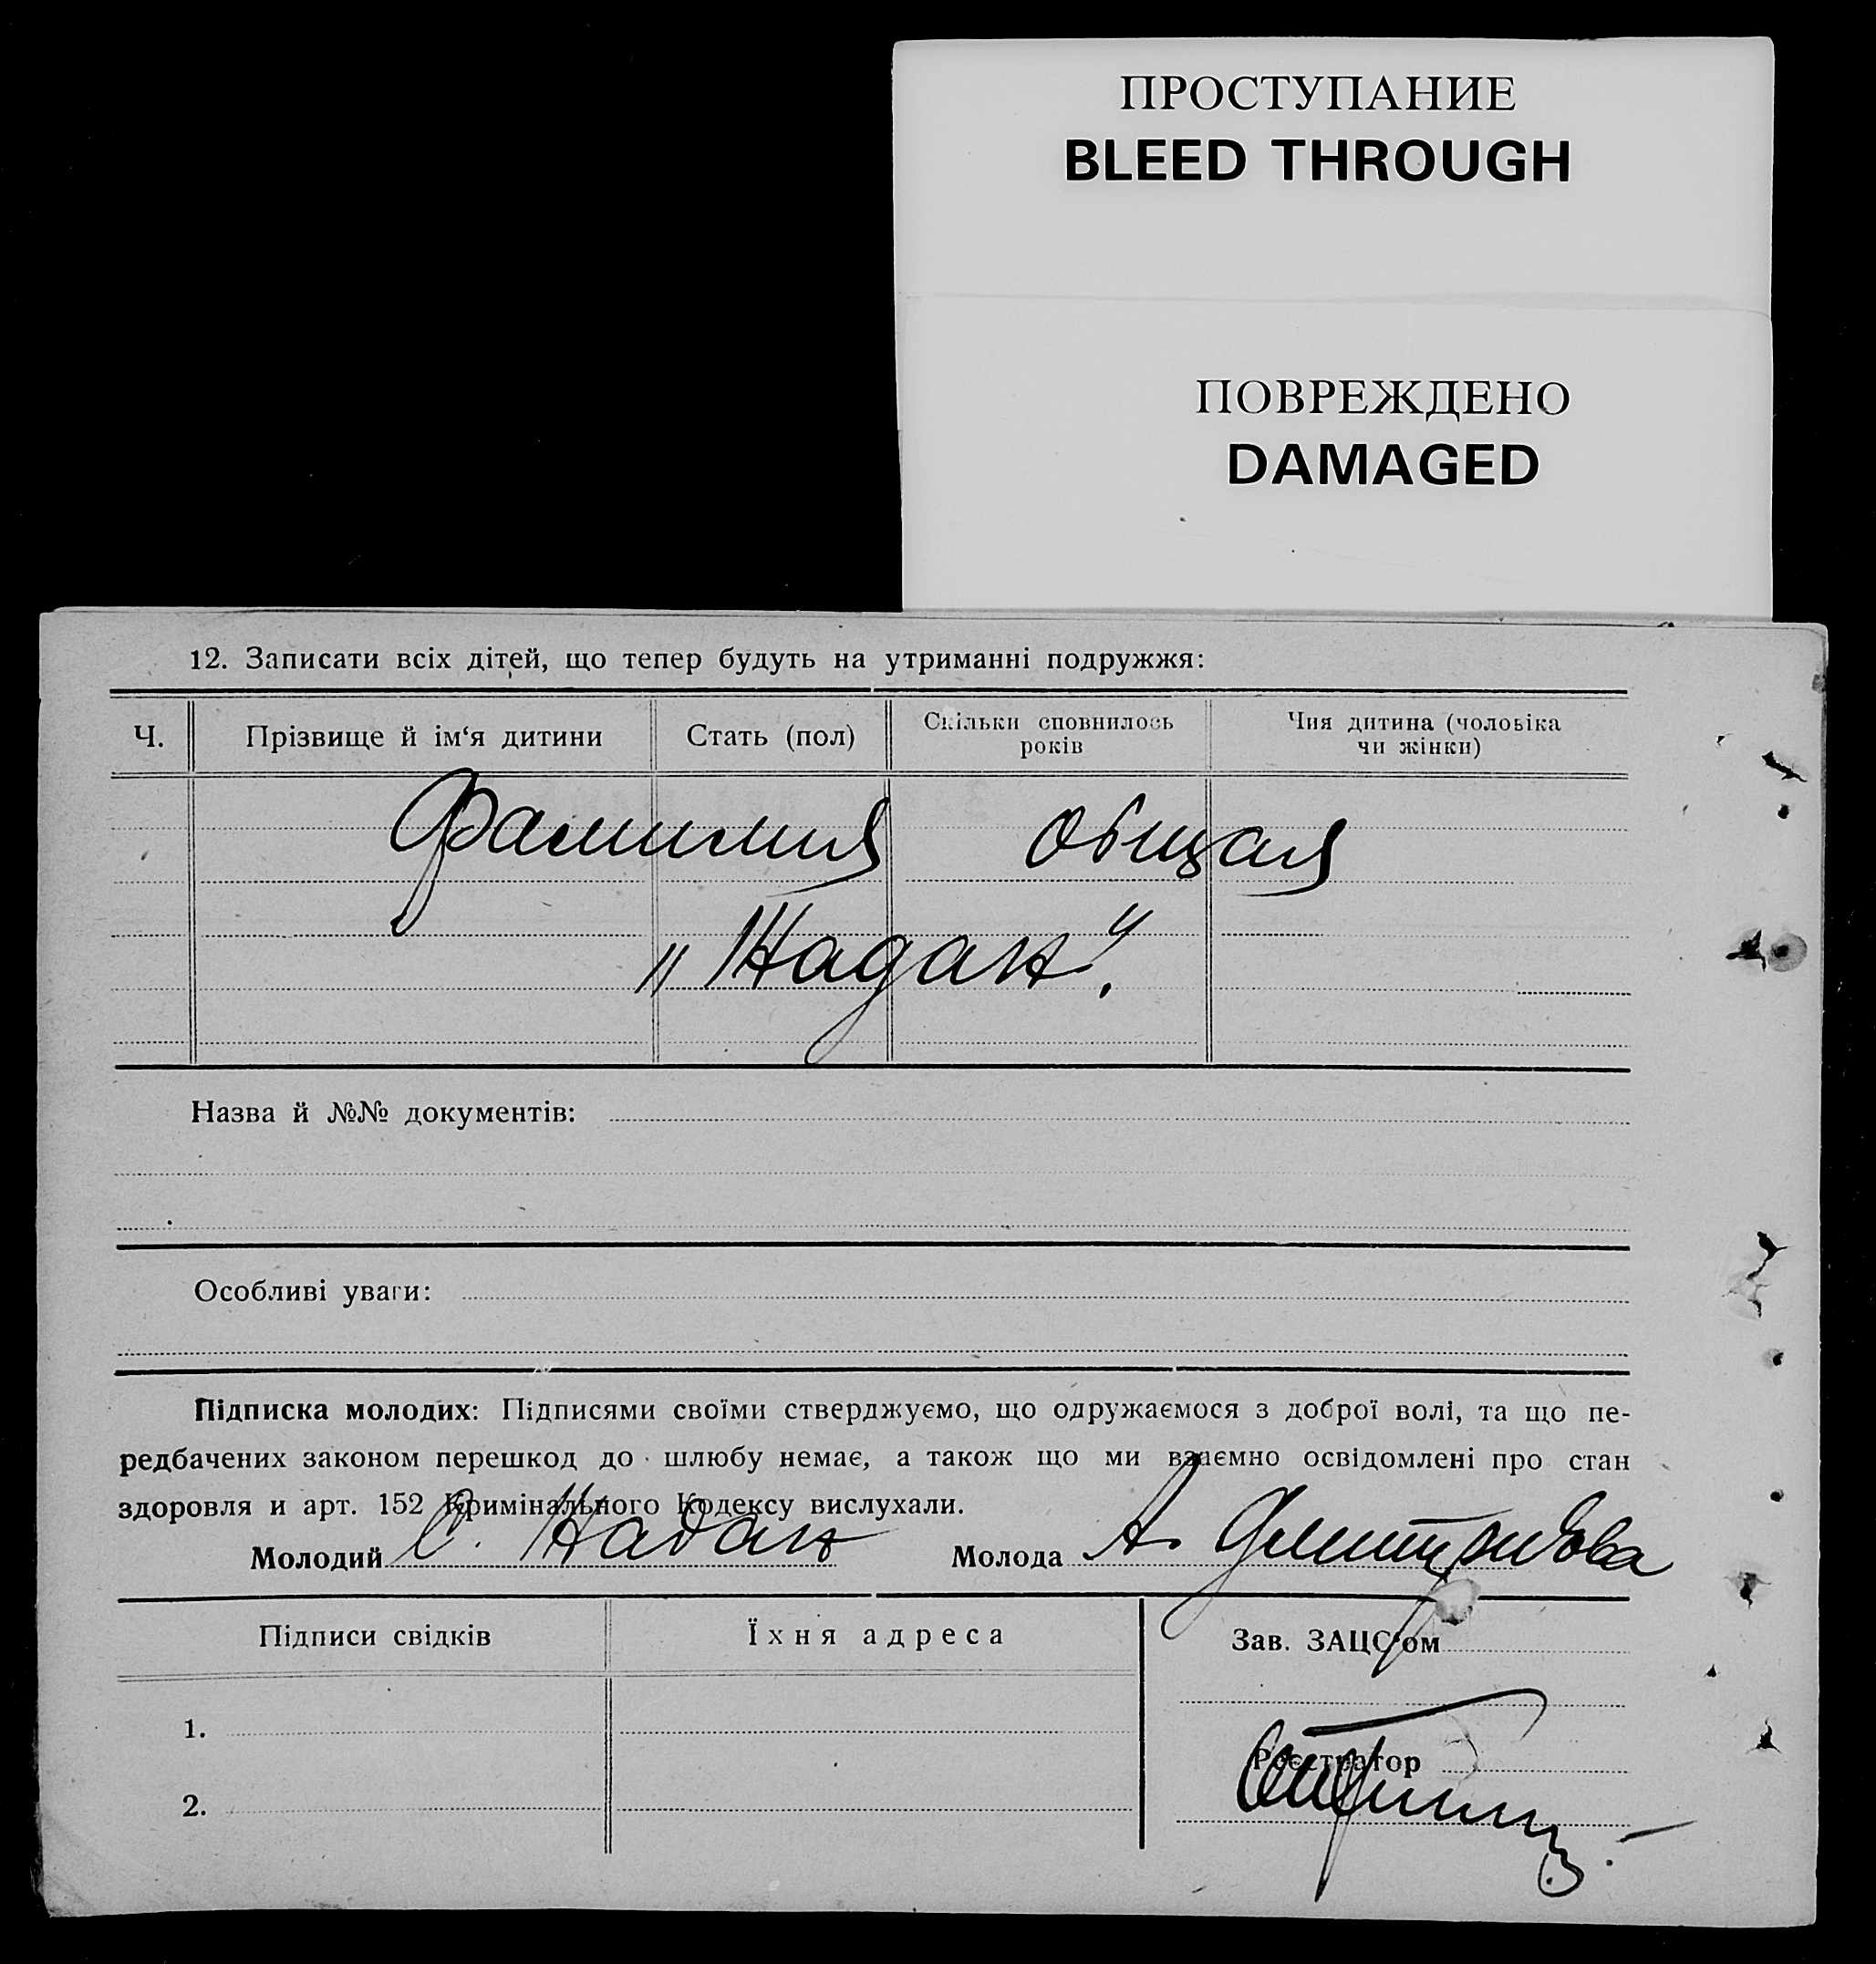 ПРОСТУПАНИЕ
BLEED THROUGH
ПОВРЕЖДЕНО
DAMAGED
12. Записати всіх дітей, що тепер будуть на утриманні подружжя:
Ч.
Прізвище й ім‘я дитини
Стать (пол)
Скільки сповнилось
років
Чия дитина (чоловіка
чи жінки)
Фамилия общая
„Надан“.
Назва й №№ документів:
Особливі уваги:
Підписка молодих: Підписями своїми стверджуємо, що одружаємося з доброї волі, та що пе-
редбачених законом перешкод до шлюбу немає, а також що ми взаємно освідомлені про стан
здоровля и арт. 152 Кримінального Кодексу вислухали.
Молодий С. Надан Молода А. Димитрикова
Підписи свідків
Їхня адреса
Зав. ЗАЦС‘ом
1.
Реєстратор
2.